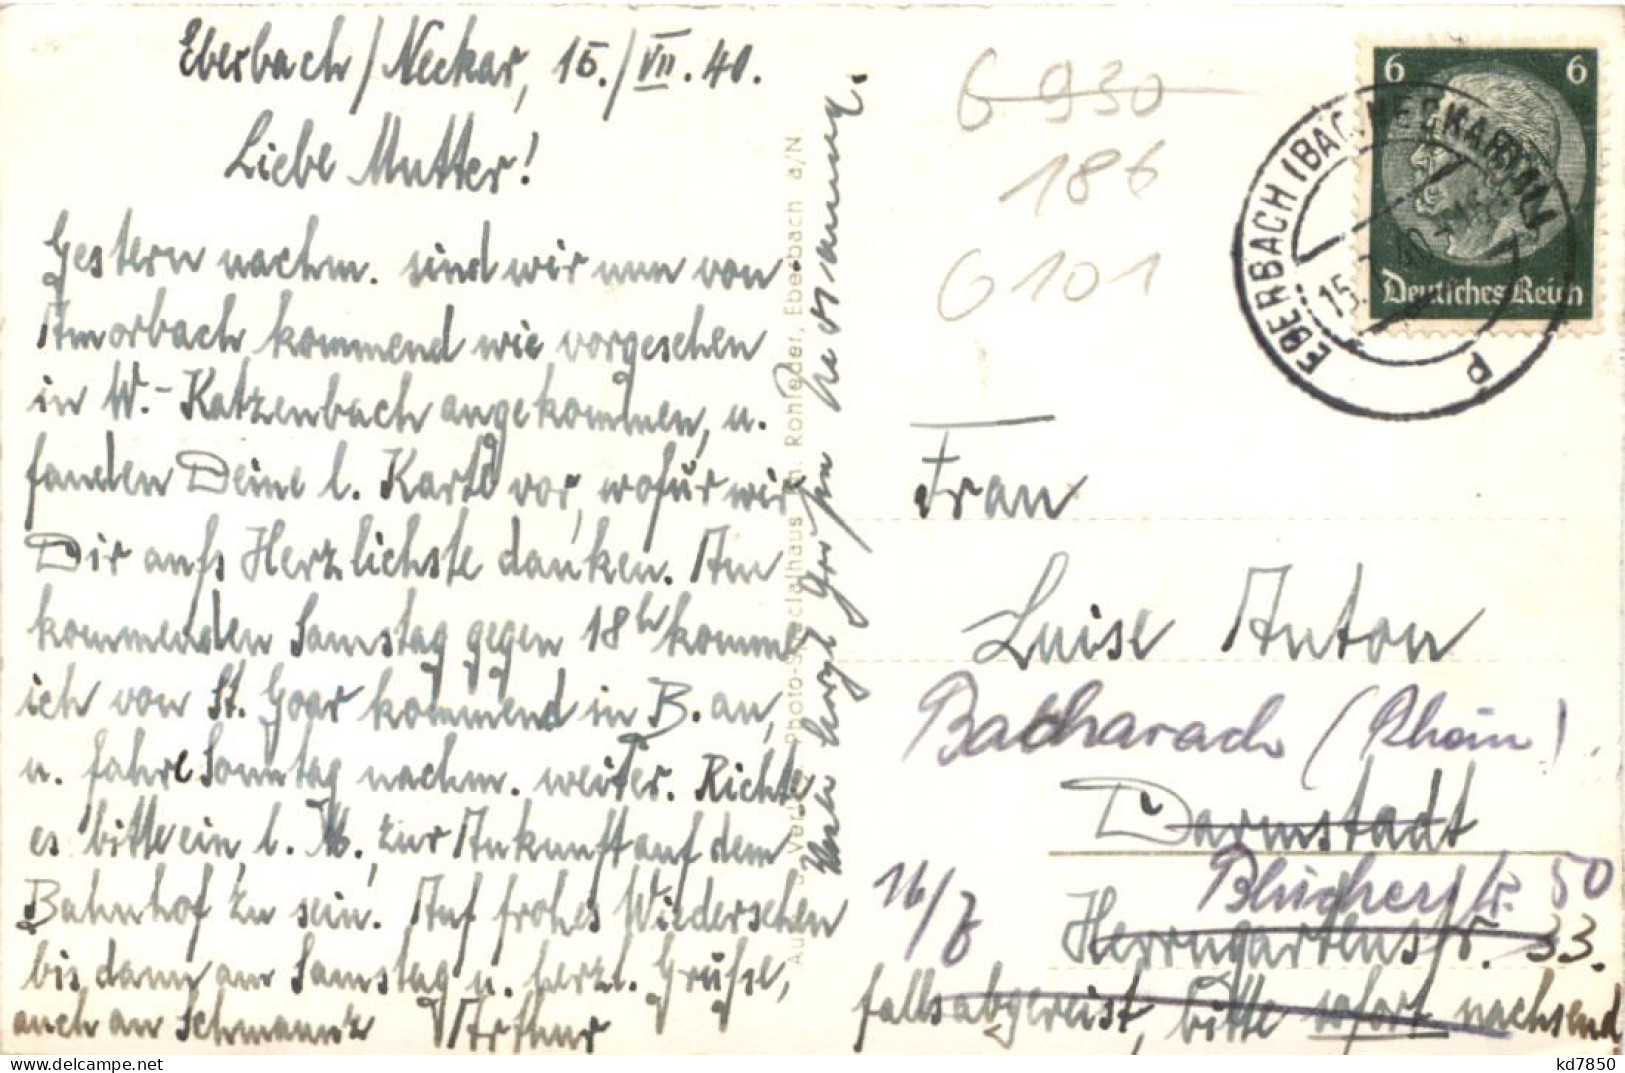 Eberbach/Neckar, 15./VII.40.
Liebe Mutter!
Gestern nachm. sind wir nun von
Amorbach kommend wie vorgesehen
in W.-Katzenbach angekommen, u.
fanden Deine l. Karte vor, wofür wir
Dir aufs Herzlichste danken. Am
kommenden Samstag gegen 18h komme
ich von St. Goar kommend in B. an,
u. fahre Sonntag nachm. weiter. Richte
es bitte ein, l. M., zur Ankunft auf dem
Bahnhof zu sein. Auf frohes Wiedersehen
bis dann am Samstag u. herzl. Grüße,
auch an Schmannz Arthur
Rohrleder, Eberbach a/N
6 930
186
G 101
6 6
Deutsches Reich
EBERBACH (BAD. NECKARTAL)
15.
Frau
Luise Anton
Bacharach (Rhein)
Darmstadt
Blücherstr. 50
16/7
Herrngartenstr. 33.
falls abgereist, bitte sofort nachsend
kd7850